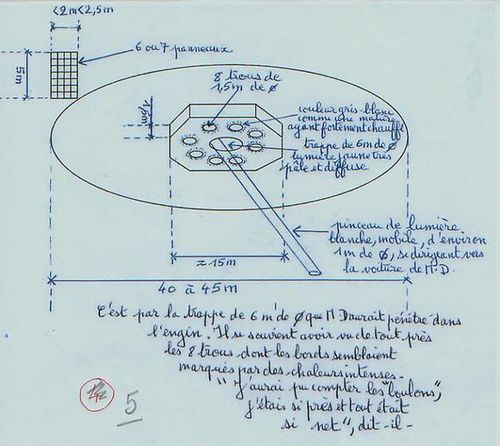 <2m<2,5m
6 ou 7 panneaux
5m
8 trous de
1,5m de ø
couleur gris-blanc
comme une matière
ayant fortement chauffé
trappe de 6m de ø
lumière jaune très
pâle et diffuse
pinceau de lumière
blanche, mobile, d'environ
1m de ø, se dirigeant vers
la voiture de M.D.
≈ 15m
40 à 45m
C'est par la trappe de 6 m de ø que M D aurait pénétré dans
l'engin. Il se souvient avoir vu de tout près
les 8 trous dont les bords semblaient
marqués par des chaleurs intenses.
"J'aurai pu compter les "boulons",
j'étais si près et tout était
si net", dit-il-
5